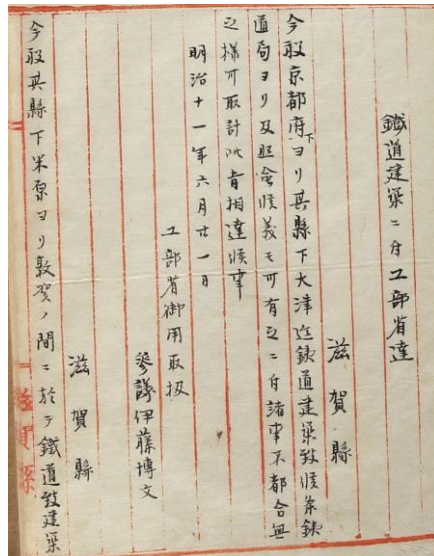 鐵道建築ニ付工部省達
滋賀縣
今般京都府下ヨリ其縣下大津迄鉄道建築致候条鉄
道局ヨリ及照会候義モ可有之ニ付諸事不都合無
之様可取計此旨相達候事
明治十一年六月廿一日
工部省御用取扱
参議伊藤博文
滋賀縣
今般其縣下米原ヨリ敦賀ノ間ニ於テ鐵道致建築
滋賀縣